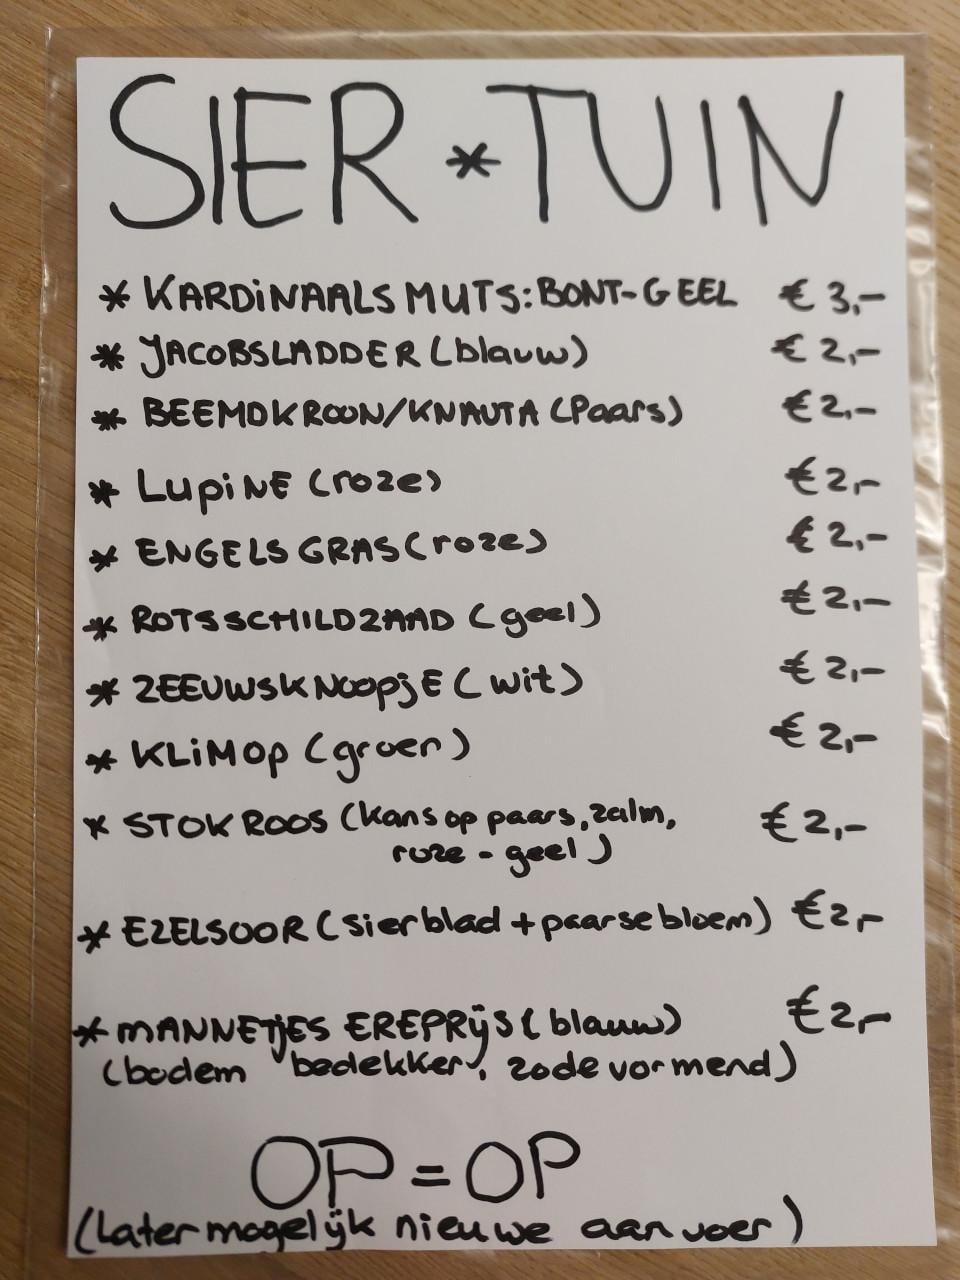 SIER * TUIN
* KARDINAALSMUTS: BONT-GEEL € 3,-
* JACOBSLADDER (blauw) € 2,-
* BEEMDKROON/KNAUTA (Paars) € 2,-
* LUPINE (roze) € 2,-
* ENGELS GRAS (roze) € 2,-
* ROTSSCHILDZAAD (geel) € 2,-
* ZEEUWSKNOOPJE (wit) € 2,-
* KLIMOP (groen) € 2,-
* STOKROOS (kans op paars, zalm, € 2,-
roze - geel)
* EZELSOOR (sierblad + paarse bloem) € 2,-
* MANNETJES EREPRIJS (blauw) € 2,-
(bodem bedekker, zodevormend)
OP = OP
(Later mogelijk nieuwe aanvoer)